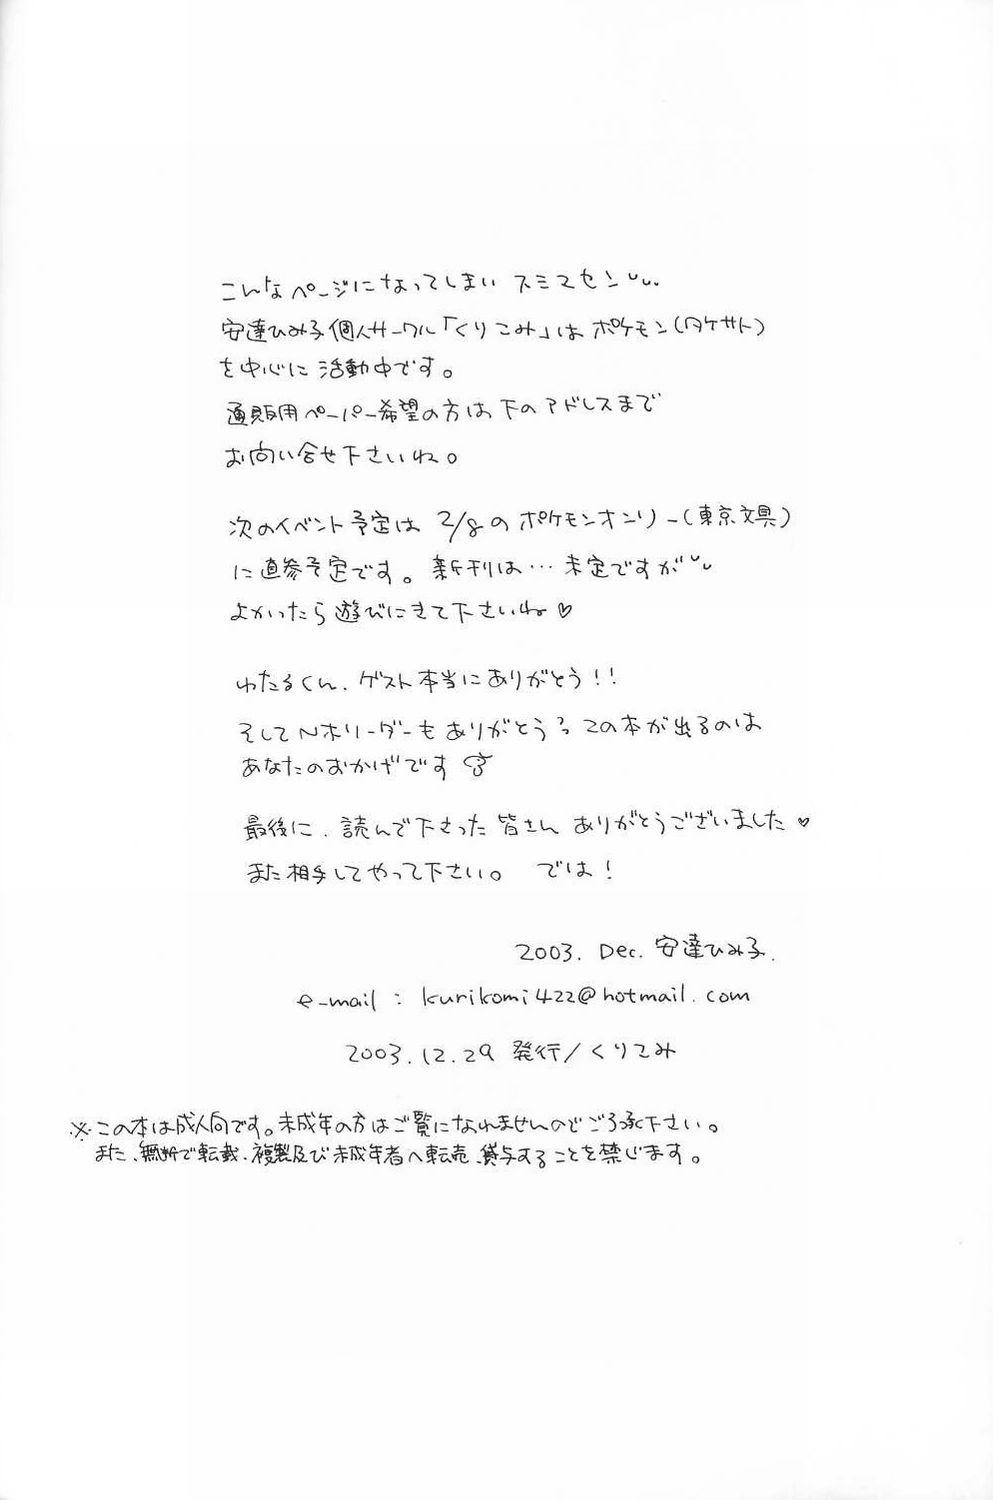 こんなページになってしまい スミマセン
安達ひみ子個人サークル「くりこみ」はポケモン(タケサト)
を中心に活動中です。
通販用ペーパー希望の方は下のアドレスまで
お問い合せ下さいね。
次のイベント予定は 2/8の ポケモンオンリー(東京文具)
に直参予定です。新刊は…未定ですが
よかったら遊びにきて下さいね♡
わたるくん、ゲスト本当にありがとう!!
そしてNホリーダーもありがとう この本が出るのは
あなたのおかげです
最後に、読んで下さった皆さん ありがとうございました♡
また相手してやって下さい。 では!
2003. Dec. 安達ひみ子.
e-mail : kurikomi422@hotmail.com
2003.12.29 発行/くりこみ
※この本は成人向です。未成年の方はご覧になれませんのでご了承下さい。
また、無断で転載、複製及び未成年者へ転売、貸与することを禁じます。